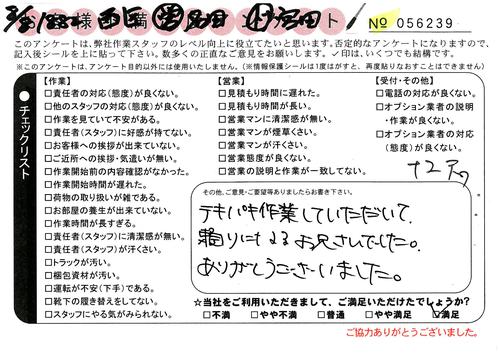 お客様 満 ト № 056239
このアンケートは、弊社作業スタッフのレベル向上に役立てたいと思います。否定的なアンケートになりますので、
記入後シールを上に貼って下さい。数多くの正直なご意見をお願いします。✓印は、いくつでも結構です。
※このアンケートは、アンケート目的以外には使用いたしません。(※情報保護シールは1度はがすと、再度貼りなおすことはできません)
チェックリスト
【作業】
□責任者の対応(態度)が良くない。
□他のスタッフの対応(態度)が良くない。
□作業を見ていて不安がある。
□責任者(スタッフ)に好感が持てない。
□お客様への挨拶が出来ていない。
□ご近所への挨拶・気遣いが無い。
□作業開始前の内容確認がなかった。
□作業開始時間が遅れた。
□荷物の取り扱いが雑である。
□お部屋の養生が出来ていない。
□作業時間が長すぎる。
□責任者(スタッフ)に清潔感が無い。
□責任者(スタッフ)が汗くさい。
□トラックが汚い。
□梱包資材が汚い。
□運転が不安(下手)である。
□靴下の履き替えをしてない。
□スタッフにやる気がみられない。
【営業】
□見積もり時間に遅れた。
□見積もり時間が長い。
□営業マンに清潔感が無い。
□営業マンが煙草くさい。
□営業マンが汗くさい。
□営業態度が良くない。
□営業の説明と作業が一致してない。
【受付・その他】
□電話の対応が良くない。
□オプション業者の説明
・作業が良くない。
□オプション業者の対応
(態度)が良くない。
その他、ご意見・ご要望等ありましたらお書き下さい。
テキパキ作業していただいて、
頼りになるお兄さんでした。
ありがとうございました。
☆当社をご利用いただきまして、ご満足いただけたでしょうか?
□不満 □やや不満 □普通 □やや満足 ☑満足
ご協力ありがとうございました。